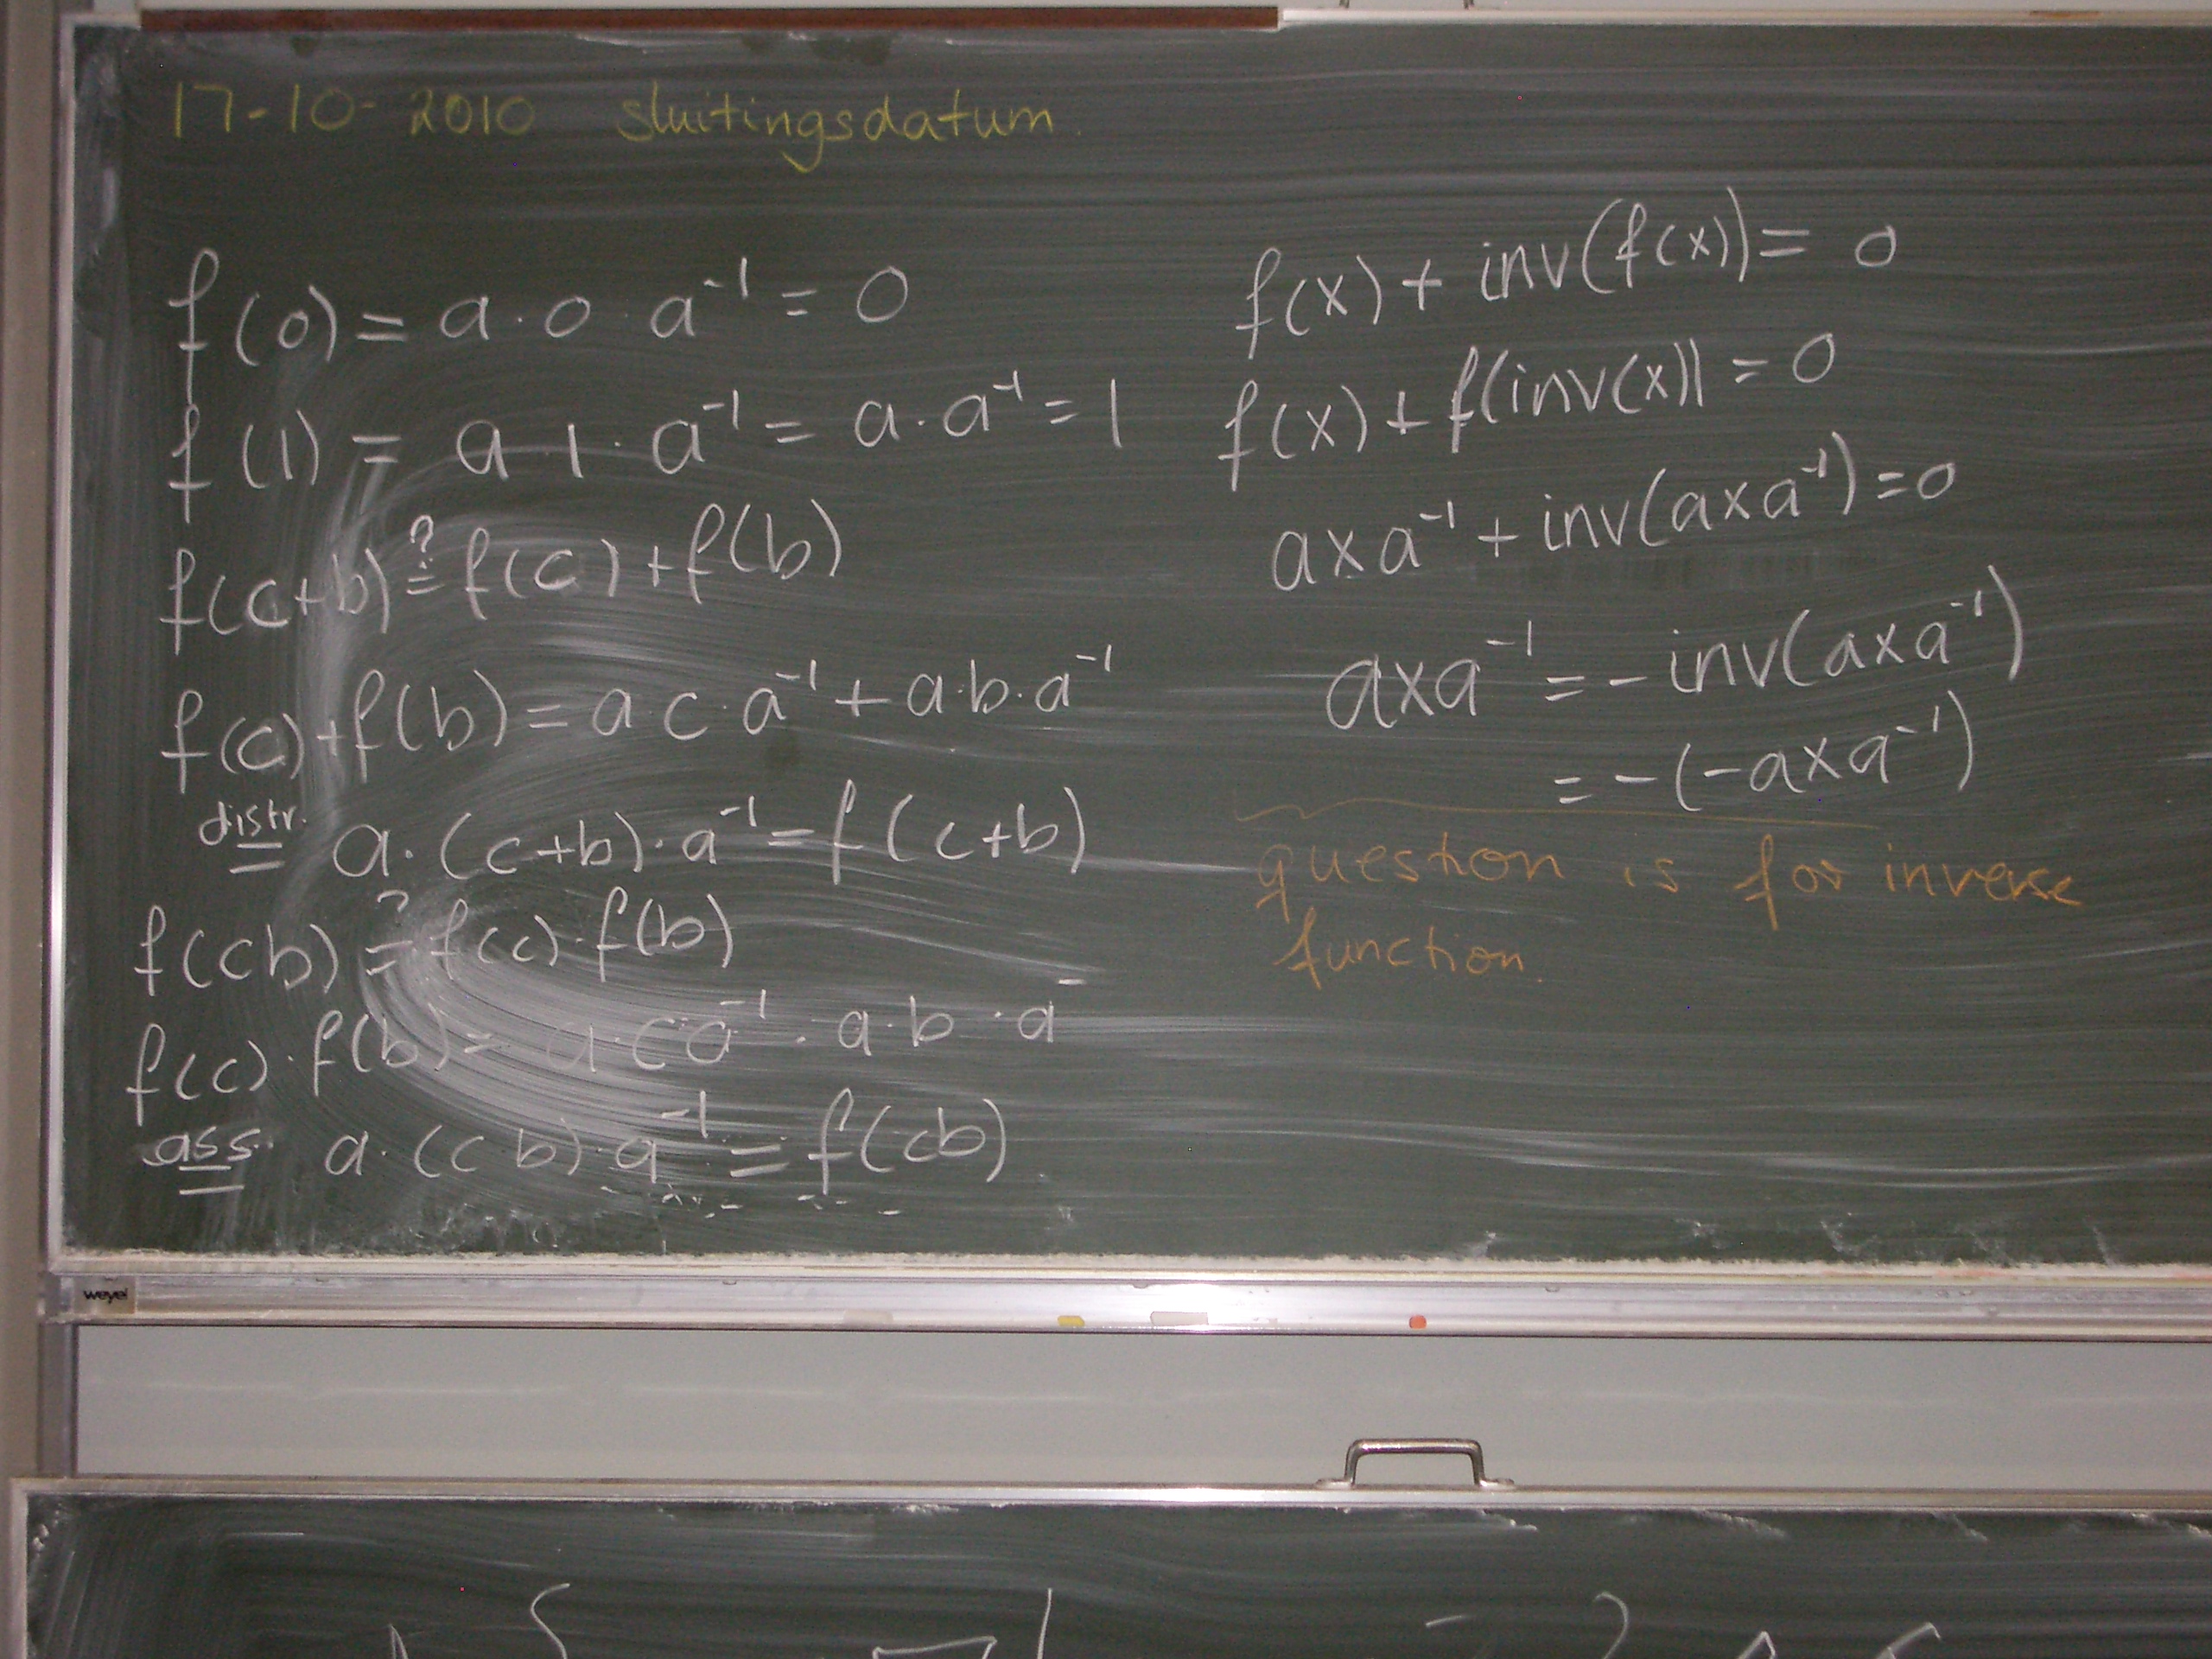 17-10-2010 sluitingsdatum.
f(0) = a·0·a⁻¹ = 0
f(1) = a·1·a⁻¹ = a·a⁻¹ = 1
f(c+b) ≟ f(c)+f(b)
f(c)+f(b) = a·c·a⁻¹ + a·b·a⁻¹
distr. = a·(c+b)·a⁻¹ = f(c+b)
f(cb) ≟ f(c)·f(b)
f(c)·f(b) = a·ca⁻¹·a·b·a⁻
ass. = a·(cb)·a⁻¹ = f(cb)
f(x) + inv(f(x)) = 0
f(x) + f(inv(x)) = 0
axa⁻¹ + inv(axa⁻¹) = 0
axa⁻¹ = - inv(axa⁻¹)
= -(-axa⁻¹)
question is for inverse
function.
weyel